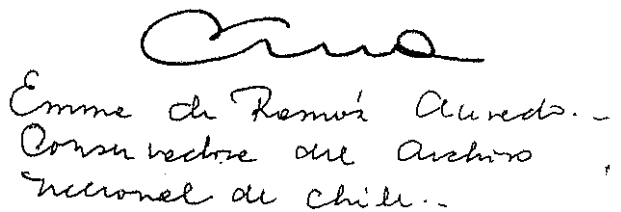 Emma de Ramón Acevedo.-
Conservadora del Archivo
Nacional de Chile.-